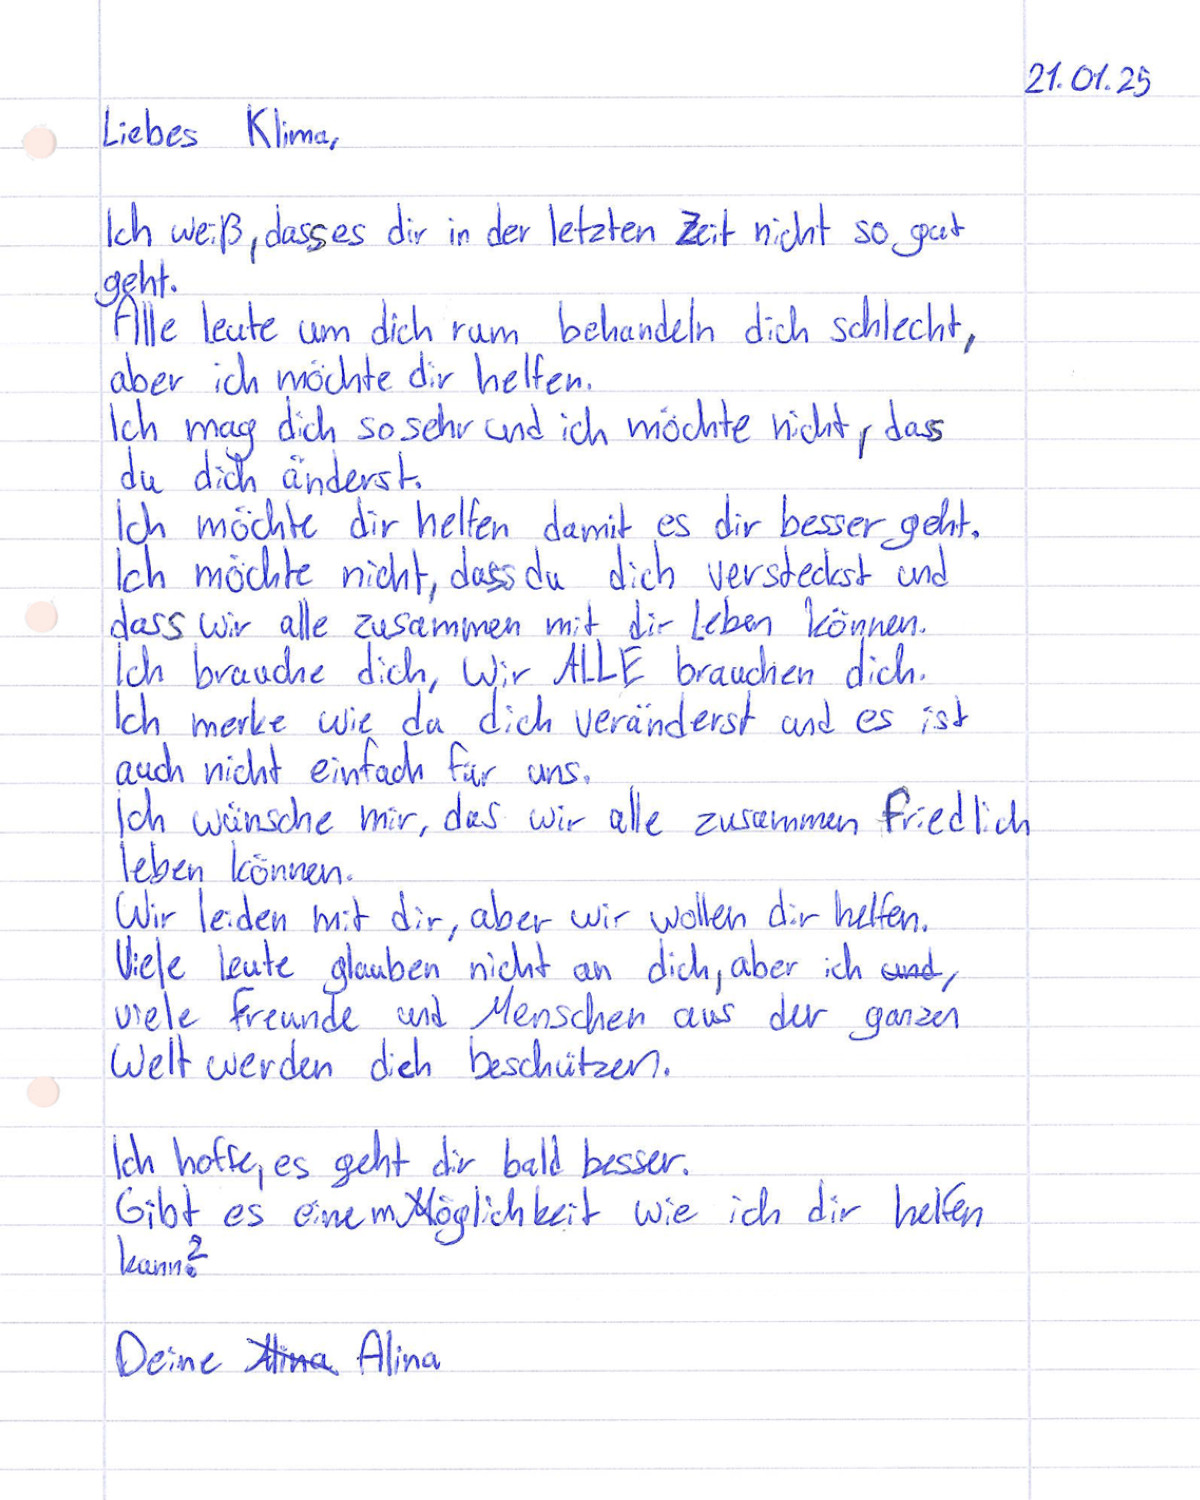 21.01.25
Liebes Klima,
Ich weiß, dass es dir in der letzten Zeit nicht so gut
geht.
Alle leute um dich rum behandeln dich schlecht,
aber ich möchte dir helfen.
Ich mag dich so sehr und ich möchte nicht, dass
du dich änderst.
Ich möchte dir helfen damit es dir besser geht.
Ich möchte nicht, dass du dich versteckst und
dass wir alle zusammen mit dir Leben können.
Ich brauche dich, Wir ALLE brauchen dich.
Ich merke wie du dich veränderst und es ist
auch nicht einfach für uns.
Ich wünsche mir, das wir alle zusammen friedlich
leben können.
Wir leiden mit dir, aber wir wollen dir helfen.
Viele leute glauben nicht an dich, aber ich und,
viele freunde und Menschen aus der ganzen
Welt werden dich beschützen.
Ich hoffe, es geht dir bald besser.
Gibt es eine Möglichkeit wie ich dir helfen
kann?
Deine Alina Alina